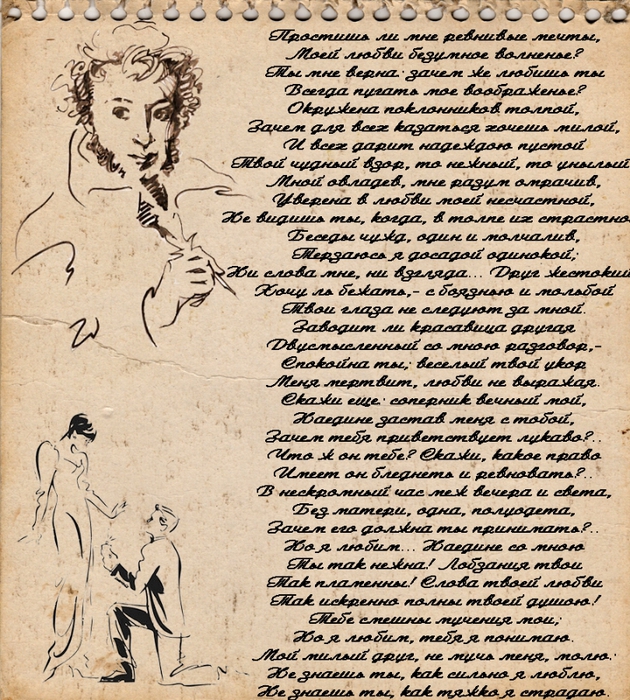 Простишь ли мне ревнивые мечты,
Моей любви безумное волненье?
Ты мне верна: зачем же любишь ты
Всегда пугать мое воображенье?
Окружена поклонников толпой,
Зачем для всех казаться хочешь милой,
И всех дарит надеждою пустой
Твой чудный взор, то нежный, то унылый
Мной овладев, мне разум омрачив,
Уверена в любви моей несчастной,
Не видишь ты, когда, в толпе их страстно
Беседы чужд, один и молчалив,
Терзаюсь я досадой одинокой;
Ни слова мне, ни взгляда... Друг жестокий
Хочу ль бежать,- с боязнью и мольбой
Твои глаза не следуют за мной.
Заводит ли красавица другая
Двусмысленный со мною разговор,-
Спокойна ты; веселый твой укор
Меня мертвит, любви не выражая.
Скажи еще: соперник вечный мой,
Наедине застав меня с тобой,
Зачем тебя приветствует лукаво?..
Что ж он тебе? Скажи, какое право
Имеет он бледнеть и ревновать?..
В нескромный час меж вечера и света,
Без матери, одна, полуодета,
Зачем его должна ты принимать?..
Но я любим... Наедине со мною
Ты так нежна! Лобзания твои
Так пламенны! Слова твоей любви
Так искренно полны твоей душою!
Тебе смешны мучения мои;
Но я любим, тебя я понимаю.
Мой милый друг, не мучь меня, молю:
Не знаешь ты, как сильно я люблю,
Не знаешь ты, как тяжко я страдаю.